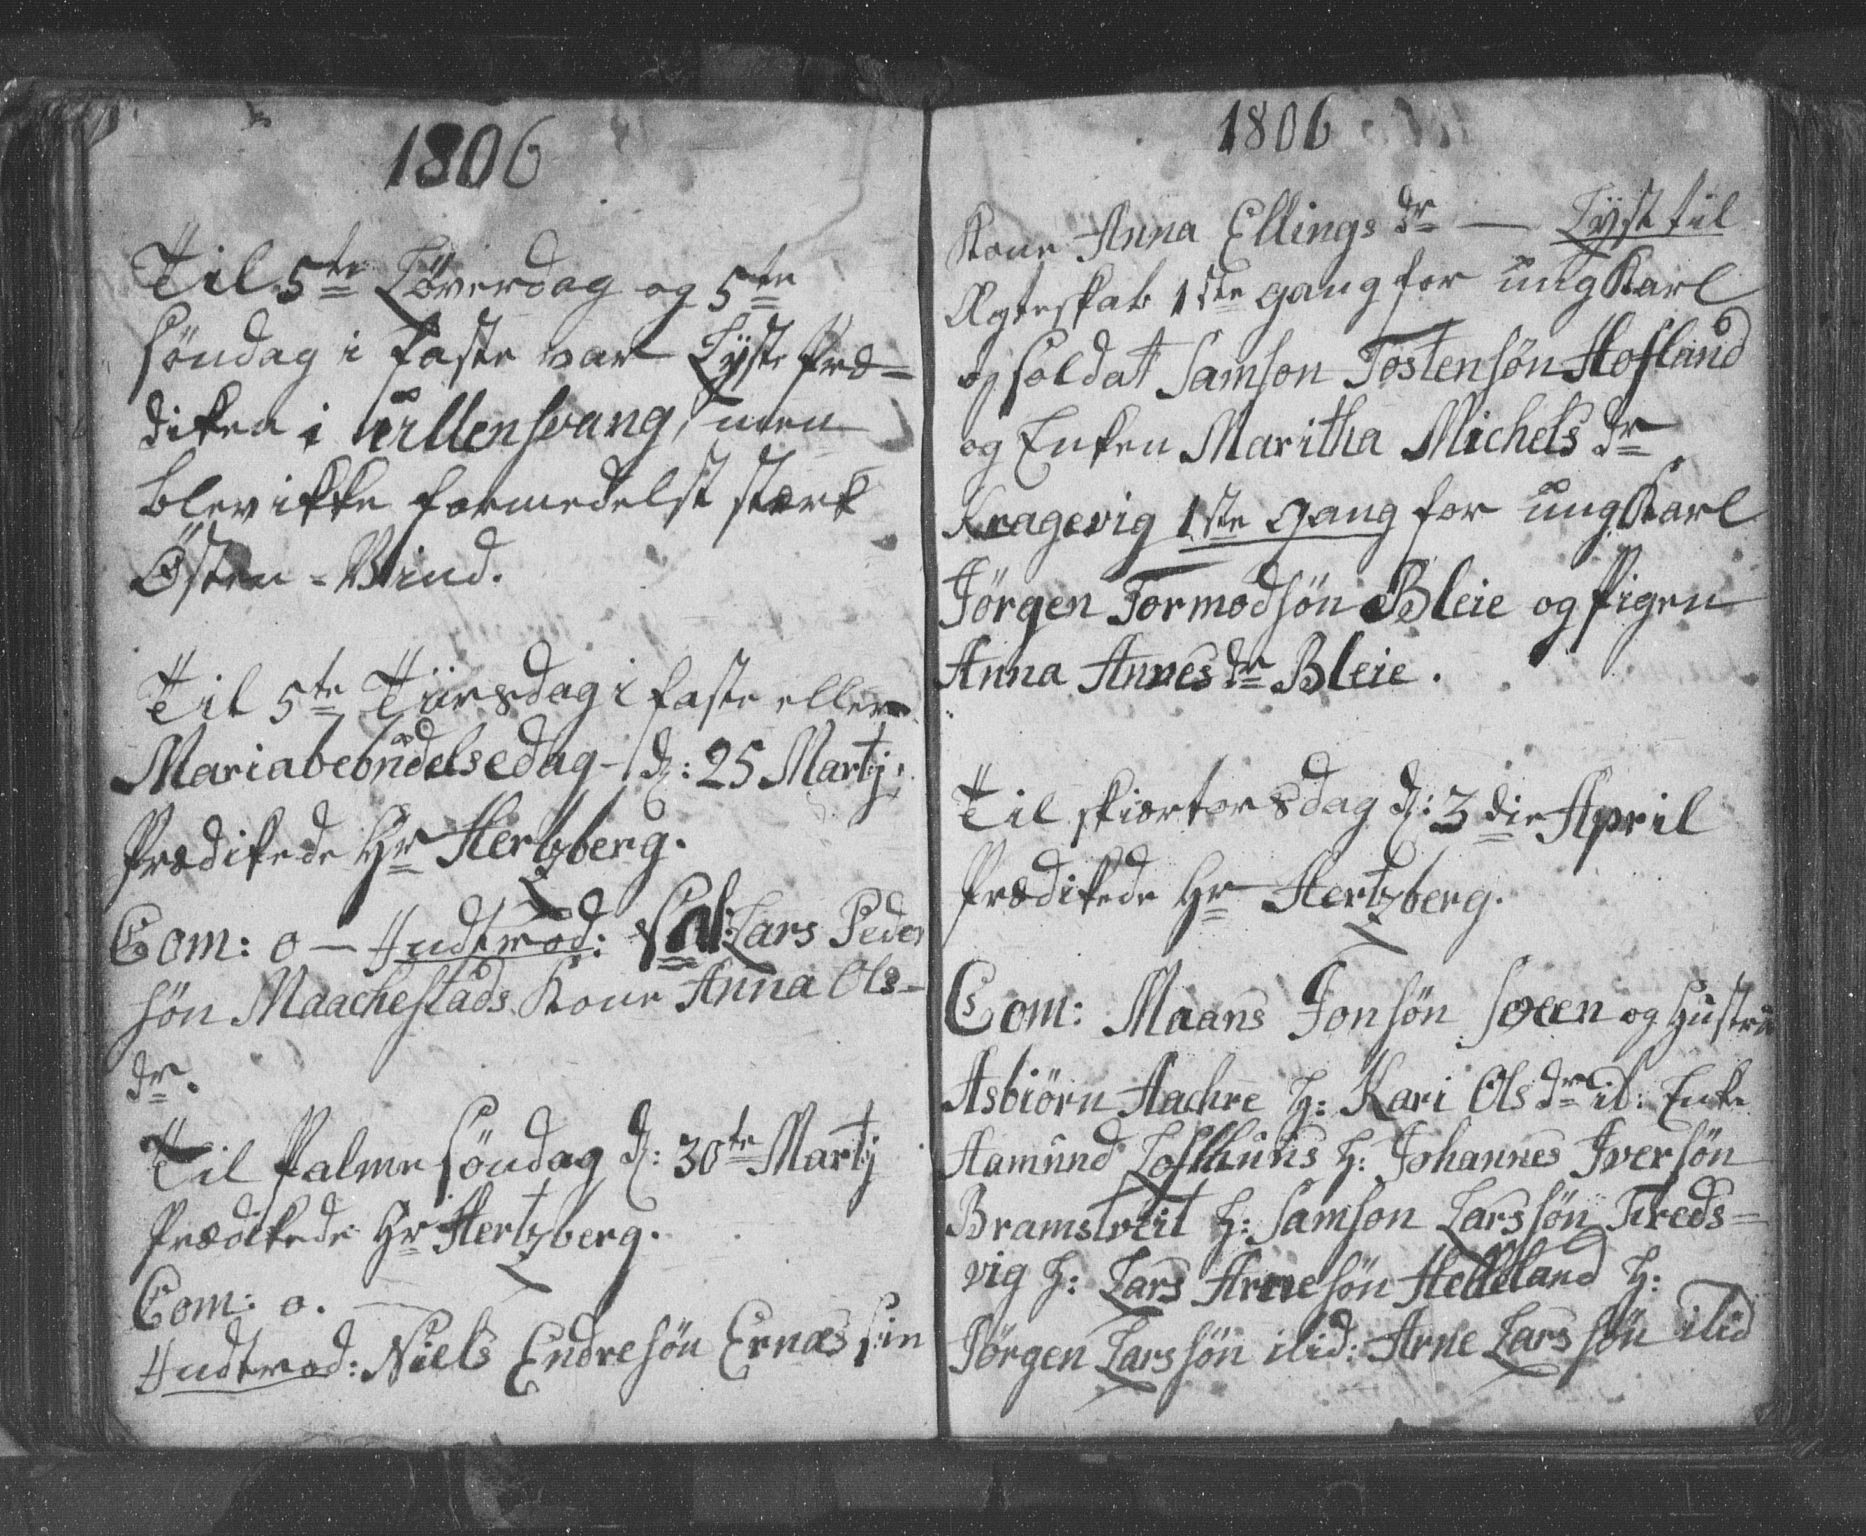 1806
Til 5te Löverdag og 5te
Söndag i faste var Lyst Præ=
diken i Ullensvang, men
blev ikke formedelst stærk
Östen-Vind.
Til 5te Tiirsdag i faste eller
Mariabebudelsedag d: 25 Martj:
Prædikede Hr Hertzberg.
Com: 0 — Indtrod: Lars Peder
sön Maachestads Kone Anna Ols-
dr.
Til Palme Söndag d: 30te Martj
Prædikede Hr Hertzberg.
Com: 0.
Indtrod: Niels Endresön Ernæs sin
1806
Kone Anna Ellings dr — Lyst til
Ægteskab 1ste gang for ungKarl
og Soldat Samson Tostensön Hofland
og Enken Maritha Michels dr
Kragevig 1ste gang for ungKarl
Jörgen Tormodsön Bleie og Pigen
Anna Annes dr Bleie.
Til skiærtorsdag d: 3die April
Prædikede Hr Hertzberg.
Com: Maans Jonsön og Hustru
Asbiörn Aachre H: Kari Ols dr ib: Enke
Aamund Lofthuus H: Johannes Iversön
Bramstveit H: Samson Larssön Treds-
vig H: Lars Arnesön Helleland H:
Jörgen Larssön ilid: Arne Larssön ilid